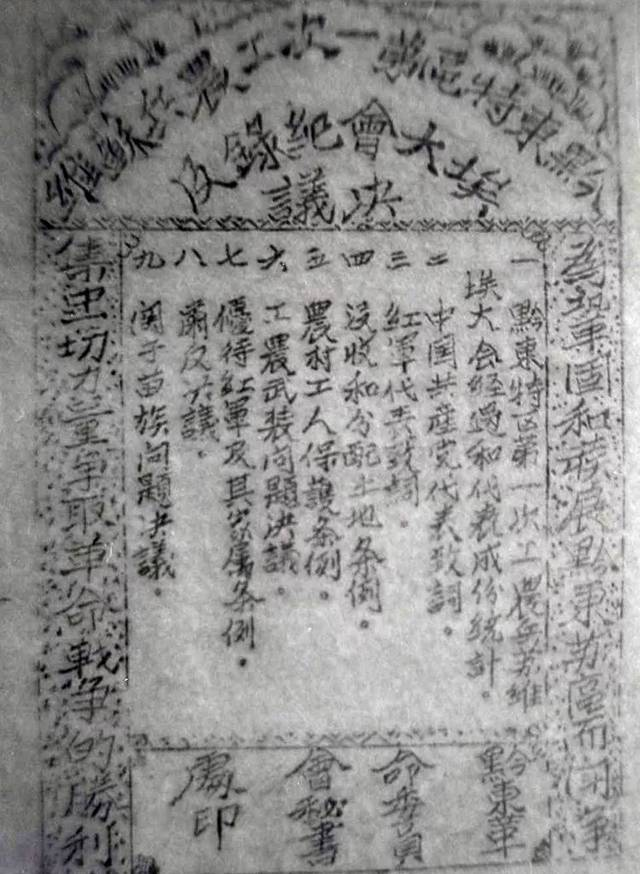 黔東特區第一次工農兵蘇維
埃大會紀錄及
决議
為鞏固和發展黔東苏區而鬥爭
一 黔東特区第一次工農兵苏維
埃大会經過和代表成份統計。
二 中国共産党代表致詞。
三 紅軍代表致詞。
四 没收和分配土地条例。
五 農村工人保護条例。
六 工農武装问題决議。
七 優待紅軍及其家属条例。
八 肅反决議。
九 関于苗族问題决議。
集中一切力量争取革命戰争的勝利
黔東革
命委員
會秘書
處印